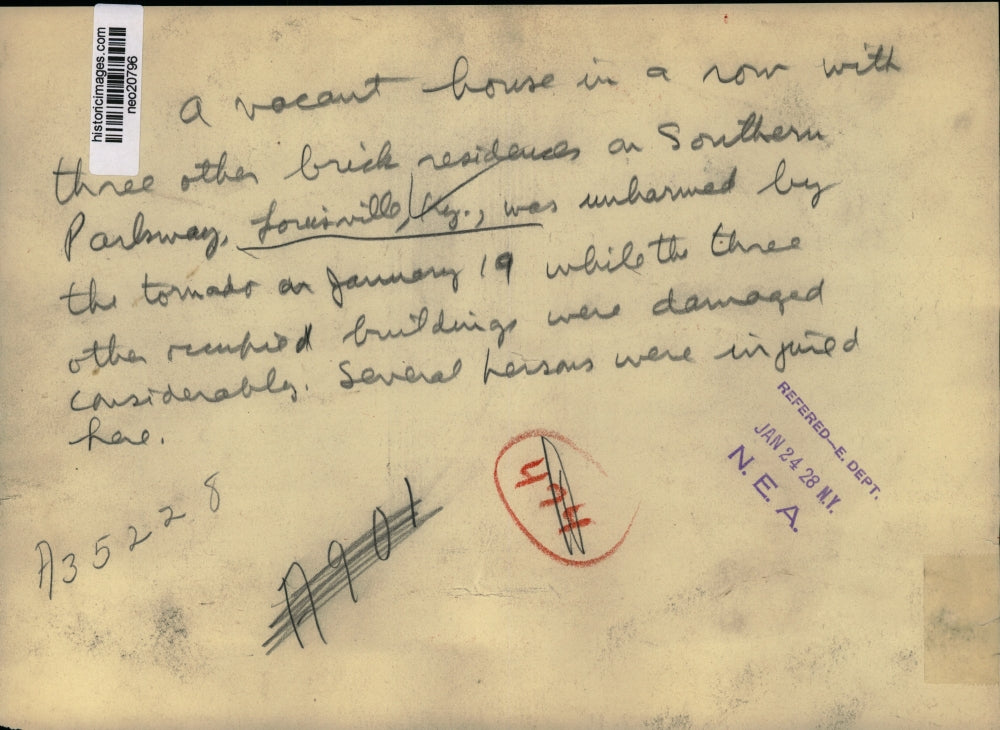 historicimages.com
neo20796
A vacant house in a row with
three other brick residences on Southern
Parkway, Louisville, Ky., was unharmed by
the tornado on January 19 while the three
other occupied buildings were damaged
considerably. Several persons were injured
here.
REFERED—E. DEPT.
JAN 24 28 N.Y.
N. E. A.
A35228
A901